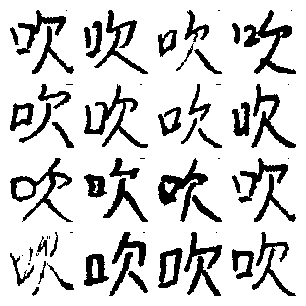 吹吹吹吹
吹吹吹吹
吹吹吹吹
吹吹吹吹